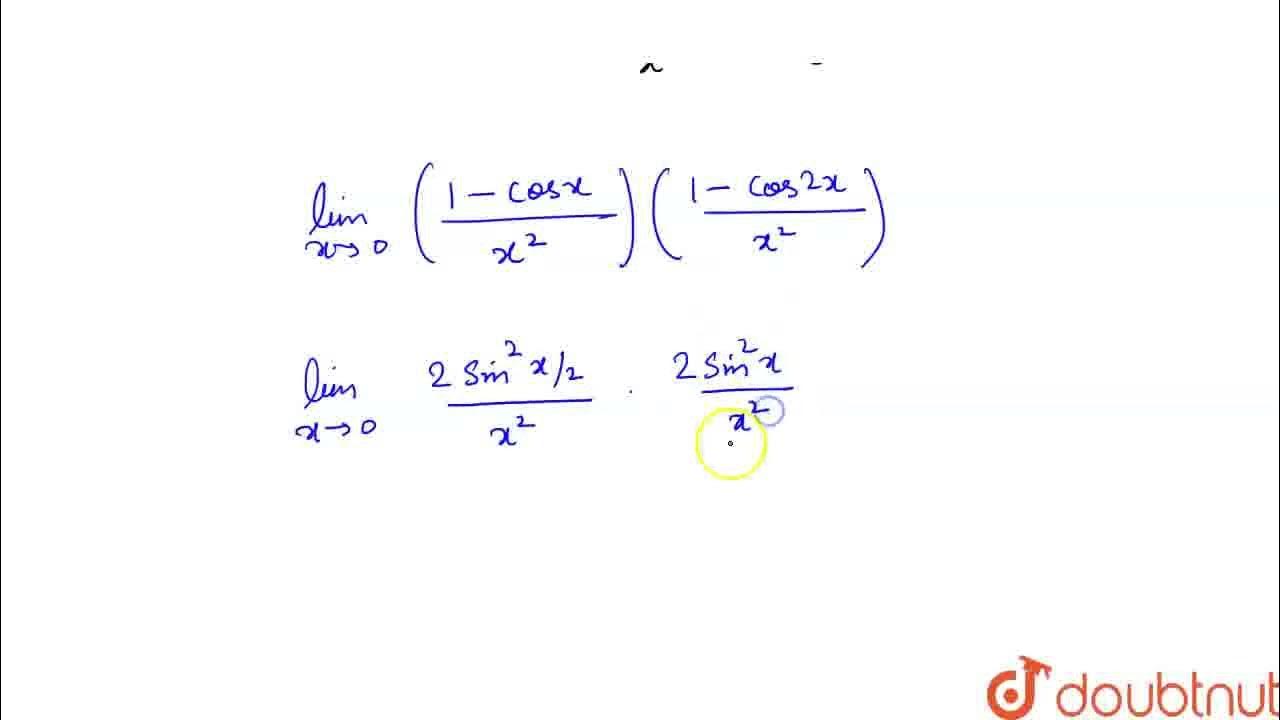 lim x→0 (1 - cosx / x²) (1 - cos2x / x²)
lim x→0 2 sin² x/2 / x² . 2 sin² x / x²
doubtnut